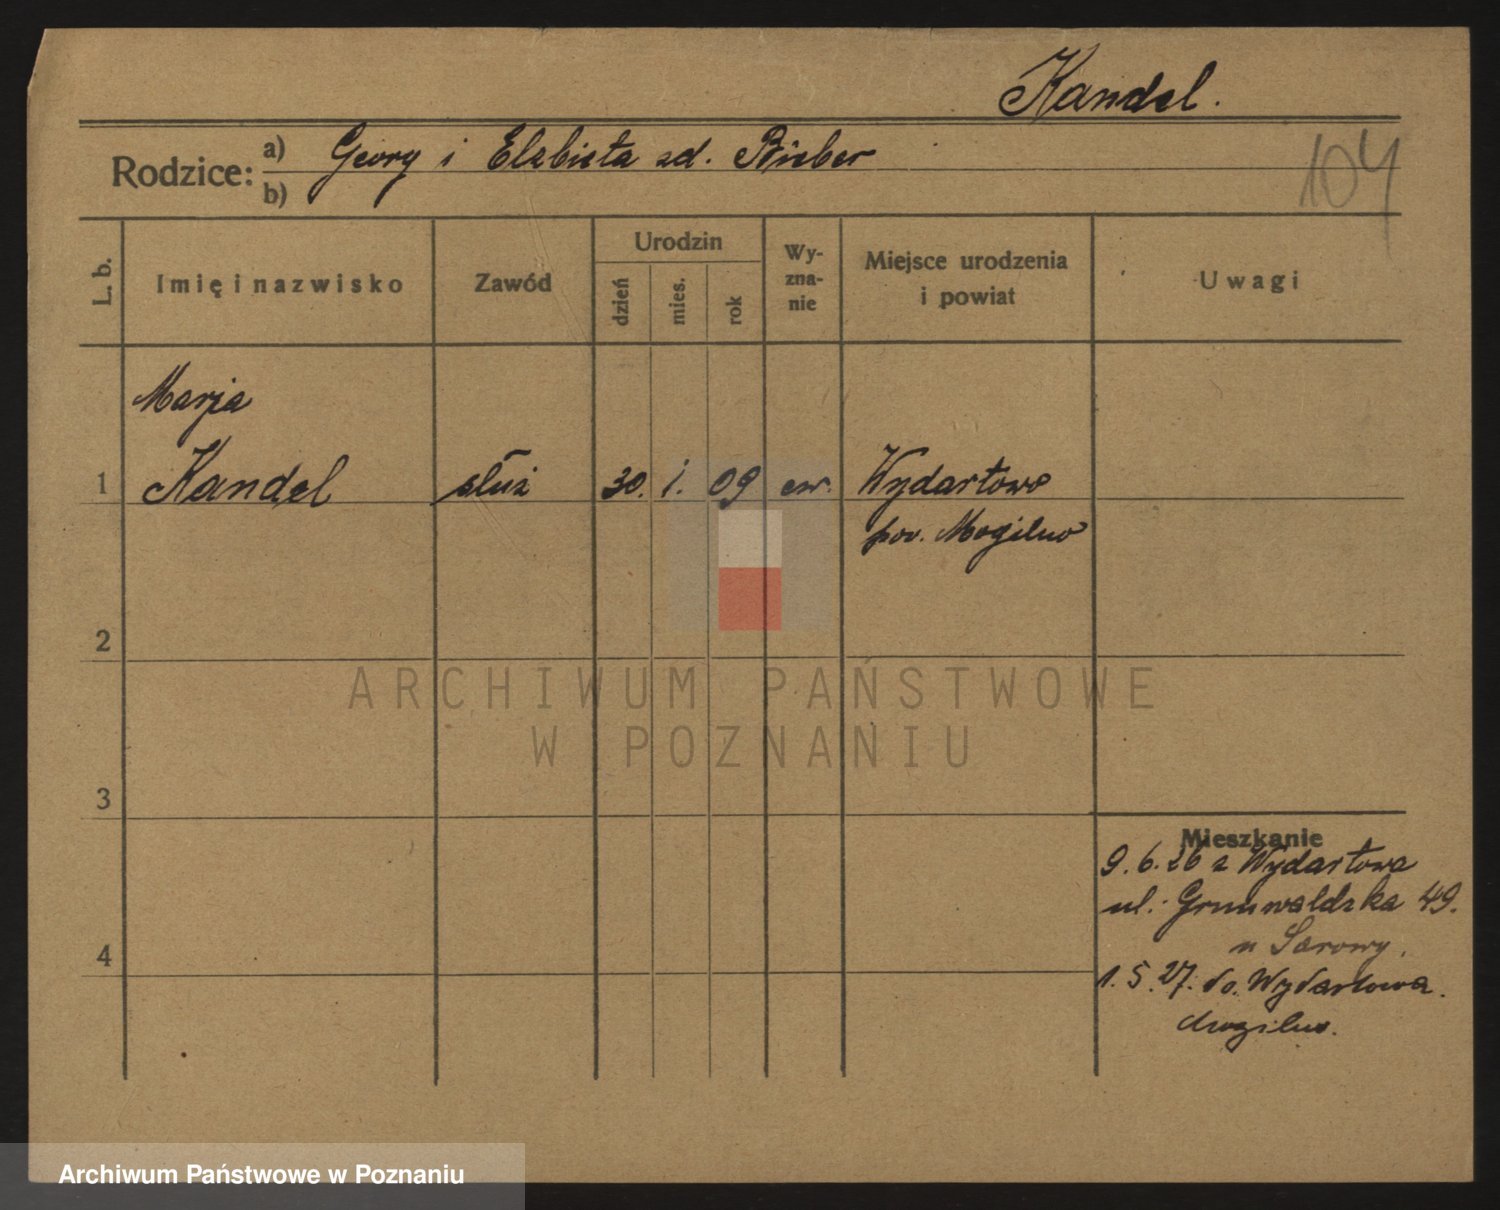 Kandel.
104
Rodzice: a) Georg i Elzbieta zd. Bieber
b)
L. b. Imię i nazwisko Zawód Urodzin dzień mies. rok Wyznanie Miejsce urodzenia i powiat Uwagi
Marja
1 Kandel służ 30. 1. 09 ew. Wydartowo
pow. Mogilno
2
3
4
Mieszkanie
9.6.26 z Wydartowa
ul. Grunwaldzka 49.
u
1.5.27. do Wydartowa.
Mogilno.
ARCHIWUM PAŃSTWOWE
W POZNANIU
Archiwum Państwowe w Poznaniu